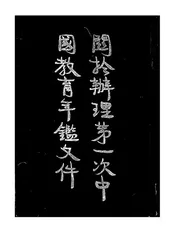 關於辦理第一次中
國教育年鑑文件